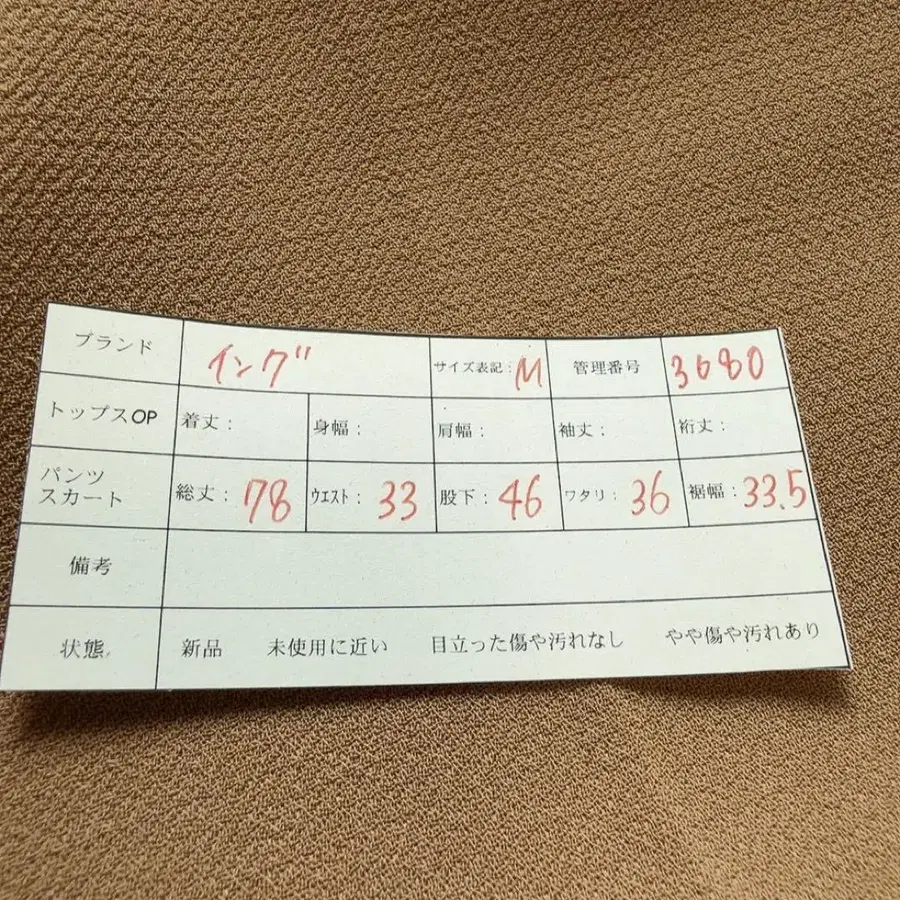 ブランド イング サイズ表記：M 管理番号 3680
トップスOP 着丈： 身幅： 肩幅： 袖丈： 裄丈：
パンツ
スカート 総丈：78 ウエスト：33 股下：46 ワタリ：36 裾幅：33.5
備考
状態 新品 未使用に近い 目立った傷や汚れなし やや傷や汚れあり